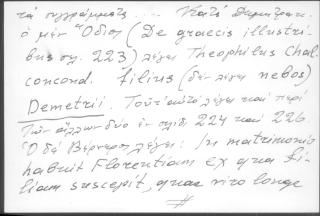 τὰ συγγράμματα ... . Κατὰ Δημητρακ.
ὁ μὲν Ὅδιος (De graecis illustri-
bus σχ. 223) λέγει Theophilus Chal-
concond. filius (δὲν λέγει nebos)
Demetrii. Τοῦτ' αὐτὸ λέγει καὶ περὶ
τῶν ἄλλων δύο ἐν σελίδι 224 καὶ 226.
Ὁ δὲ Βέρνερος λέγει: In matrimonio
habuit Florentiam ex qua fi-
liam suscepit, quae viro longe